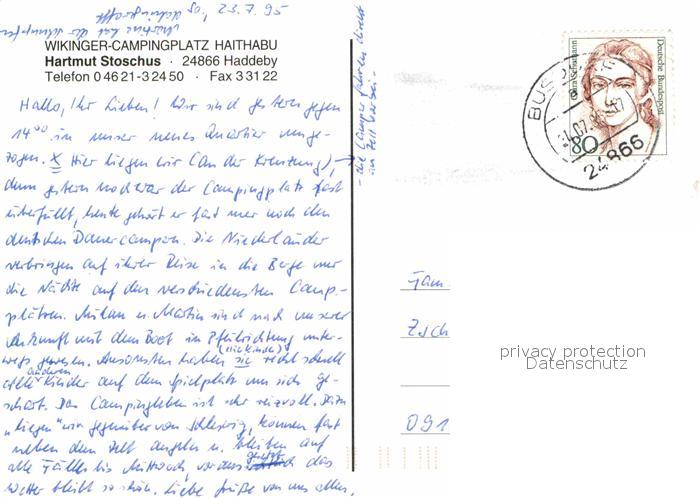 So, 23.7.95
WIKINGER-CAMPINGPLATZ HAITHABU
Hartmut Stoschus · 24866 Haddeby
Telefon 0 46 21-3 24 50 · Fax 3 31 22
Hallo, Ihr Lieben! Wir sind gestern gegen
14⁰⁰ in unser neues Quartier umge-
zogen. X Hier liegen wir (an der Kreuzung),
denn gestern noch war der Campingplatz fast
überfüllt, heute gehört er fast nur noch den
deutschen Dauercampern. Die Niederländer
verbringen auf ihrer Reise in die Berge nur
die Nächte auf den verschiedensten Camp.-
plätzen. Milan u. Martin sind nach unserer
Ankunft mit dem Boot in Pfeilrichtung unter-
wegs gewesen. Ansonsten haben sie (die Kinder) recht schnell
alle anderen Kinder auf dem Spielplatz um sich ge-
schart. Das Campingleben ist sehr reizvoll.
"liegen" wir gegenüber von Schleswig, können fast
neben dem Zelt angeln u. bleiben auf
alle Fälle bis Mittwoch, vorausgesetzt das
Wetter bleibt so schön. Liebe Grüße von uns allen.
- die Camper fahren direkt
am Zelt vorbei -
Clara Schumann
Deutsche Bundespost
80
BUS
24866
Fam.
Zsch
091
privacy protection
Datenschutz